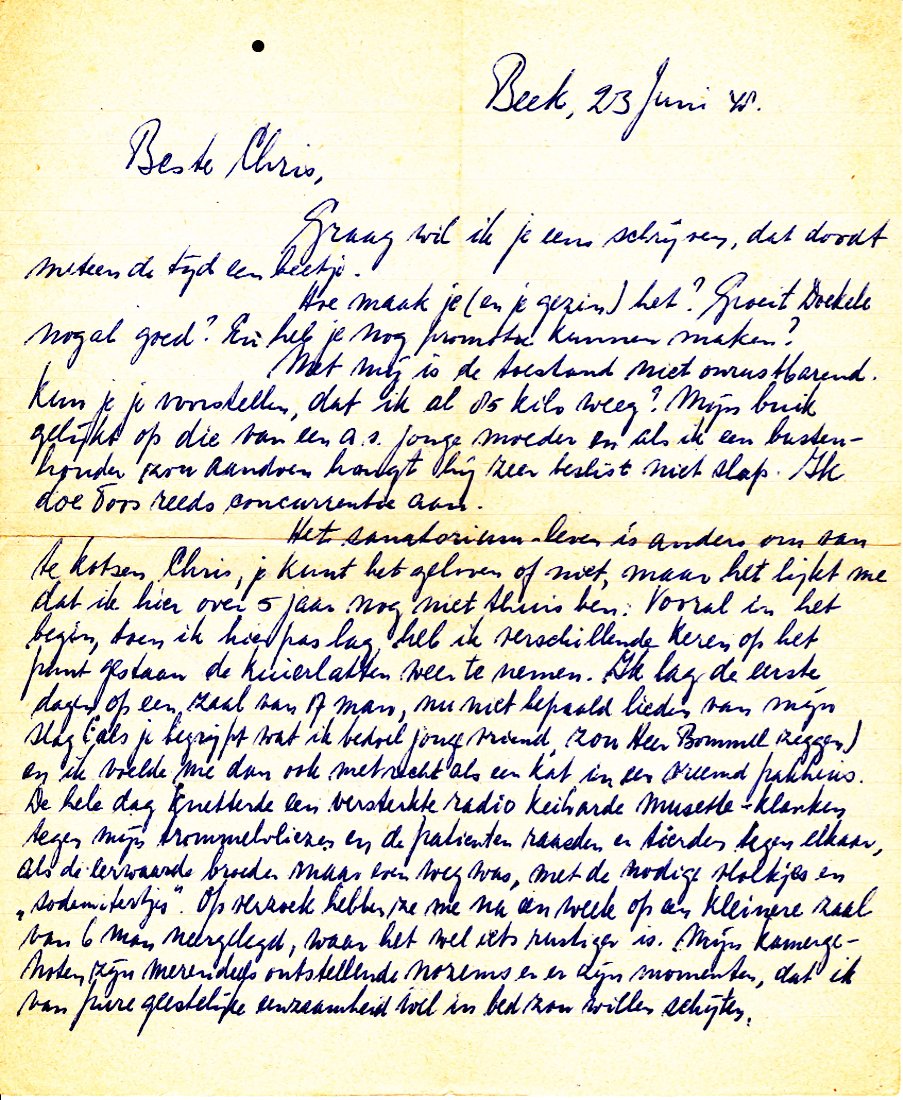 Beek, 23 Juni 48.
Beste Chris,
Graag wil ik je eens schrijven, dat doodt
meteen de tijd een beetje.
Hoe maak je (en je gezin) het? Groeit Doekele
nogal goed? En heb je nog promotie kunnen maken?
Met mij is de toestand niet onrustbarend.
Kun je je voorstellen, dat ik al 85 kilo weeg? Mijn buik
gelijkt op die van een a.s. jonge moeder en als ik een busten-
houder zou aandoen hangt hij zeer beslist niet slap. Ik
doe Toos reeds concurrentie aan.
Het sanatorium-leven is anders om van
te kotsen, Chris, je kunt het geloven of niet, maar het lijkt me
dat ik hier over 5 jaar nog niet thuis ben. Vooral in het
begin, toen ik hier pas lag, heb ik verschillende keren op het
punt gestaan de kuierlatten weer te nemen. Ik lag de eerste
dagen op een zaal van 17 man, nu niet bepaald lieden van mijn
slag (als je begrijpt wat ik bedoel jonge vriend, zou Heer Bommel zeggen)
en ik voelde me dan ook met recht als een kat in een vreemd pakhuis.
De hele dag knetterde een versterkte radio keiharde musette-klanken
tegen mijn trommelvliezen en de patienten raasden en tierden tegen elkaar,
als de eerwaarde broeder maar even weg was, met de nodige vloekjes en
„sodemitertjes". Op verzoek hebben ze me na een week op een kleinere zaal
van 6 man neergelegd, waar het wel iets rustiger is. Mijn kamerge-
noten zijn merendeels ontstellende nozems en er zijn momenten, dat ik
van pure geestelijke eenzaamheid wel in bed zou willen schijten.